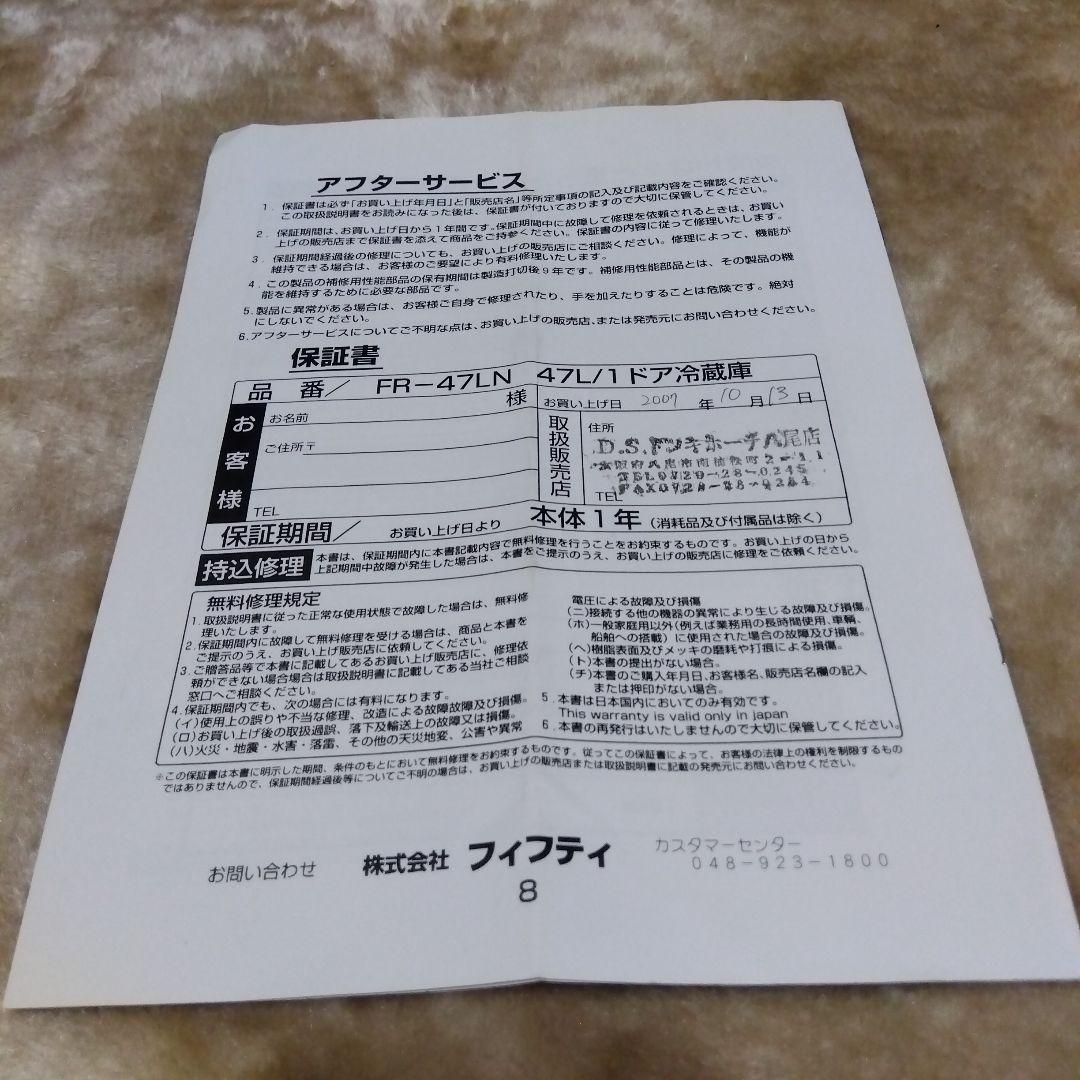 アフターサービス
1. 保証書は必ず「お買い上げ年月日」と「販売店名」等所定事項の記入及び記載内容をご確認ください。
この取扱説明書をお読みになった後は、保証書が付いておりますので大切に保管してください。
2. 保証期間は、お買い上げ日から1年間です。保証期間中に故障して修理を依頼されるときは、お買い
上げの販売店まで保証書を添えて商品をご持参ください。保証書の内容に従って修理いたします。
3. 保証期間経過後の修理についても、お買い上げの販売店にご相談ください。修理によって、機能が
維持できる場合は、お客様のご要望により有料修理いたします。
4. この製品の補修用性能部品の保有期間は製造打切後9年です。補修用性能部品とは、その製品の機
能を維持するために必要な部品です。
5. 製品に異常がある場合は、お客様ご自身で修理されたり、手を加えたりすることは危険です。絶対
にしないでください。
6. アフターサービスについてご不明な点は、お買い上げの販売店、または発売元にお問い合わせください。
保証書
品 番/ FR-47LN 47L/1ドア冷蔵庫
お客様
お名前 様
ご住所〒
TEL
お買い上げ日 2007 年 10 月 13 日
取扱販売店
住所
D.S.ドンキホーテ八尾店
TEL
保証期間/ お買い上げ日より 本体1年 (消耗品及び付属品は除く)
持込修理
本書は、保証期間内に本書記載内容で無料修理を行うことをお約束するものです。お買い上げの日から
上記期間中故障が発生した場合は、本書をご提示のうえ、お買い上げの販売店に修理をご依頼ください。
無料修理規定
1. 取扱説明書に従った正常な使用状態で故障した場合は、無料修
理いたします。
2. 保証期間内に故障して無料修理を受ける場合は、商品と本書を
ご提示のうえ、お買い上げ販売店に依頼してください。
3. ご贈答品等で本書に記載してあるお買い上げ販売店に、修理依
頼ができない場合場合は取扱説明書に記載してある当社ご相談
窓口へご相談ください。
4. 保証期間内でも、次の場合には有料になります。
(イ)使用上の誤りや不当な修理、改造による故障故障及び損傷。
(ロ)お買い上げ後の取扱過誤、落下及輸送上の故障又は損傷。
(ハ)火災・地震・水害・落雷、その他の天災地変、公害や異常
電圧による故障及び損傷
(ニ)接続する他の機器の異常により生じる故障及び損傷。
(ホ)一般家庭用以外(例えば業務用の長時間使用、車輌、
船舶への搭載)に使用された場合の故障及び損傷。
(ヘ)樹脂表面及びメッキの磨耗や打痕による損傷。
(ト)本書の提出がない場合。
(チ)本書のご購入年月日、お客様名、販売店名欄の記入
または押印がない場合。
5. 本書は日本国内においてのみ有効です。
This warranty is valid only in japan
6. 本書の再発行はいたしませんので大切に保管してください。
※この保証書は本書に明示した期間、条件のもとにおいて無料修理をお約束するものです。従ってこの保証書によって、お客様の法律上の権利を制限するもの
ではありませんので、保証期間経過後等についてご不明の場合は、お買い上げの販売店または取扱説明書に記載の発売元にお問い合わせください。
お問い合わせ 株式会社 フィフティ カスタマーセンター
048-923-1800
8